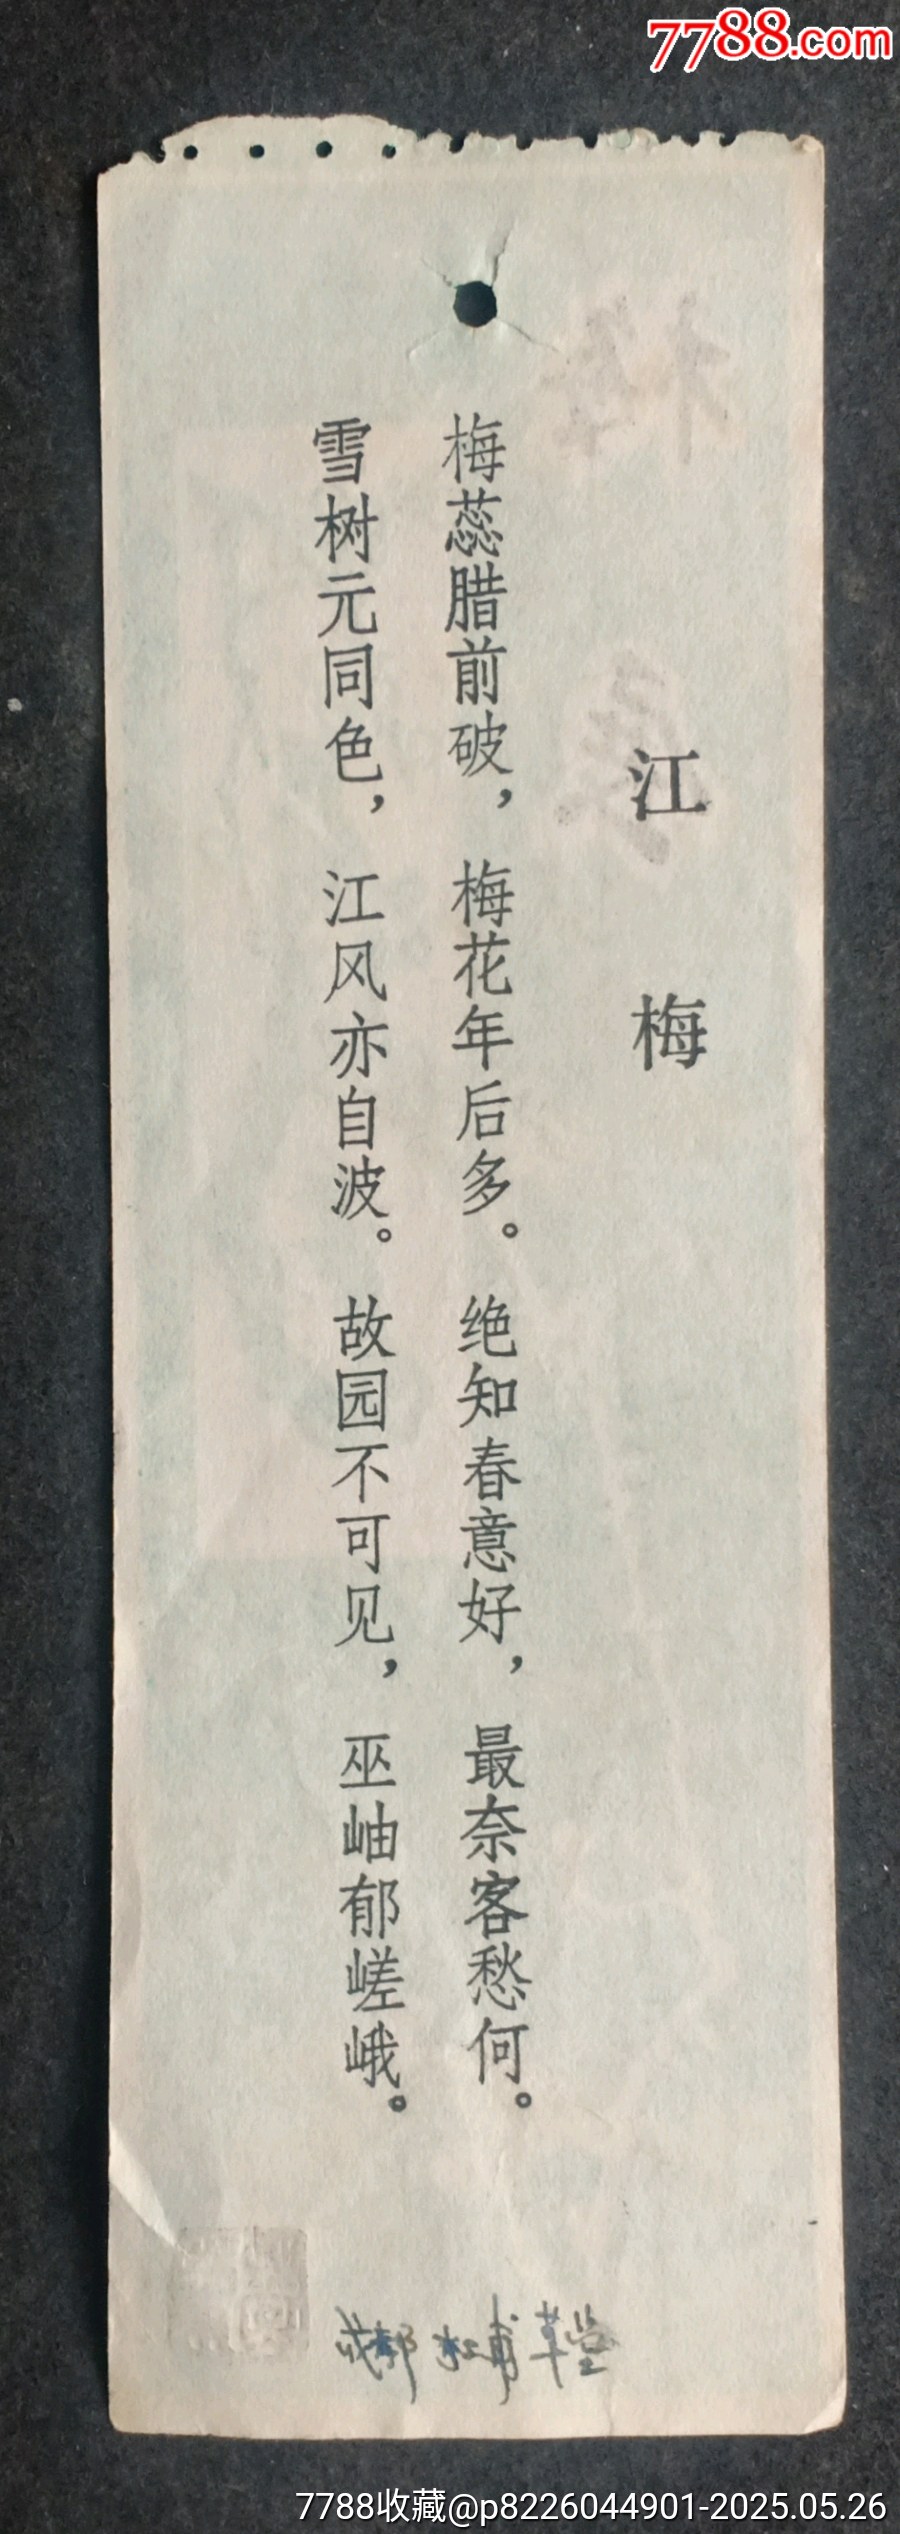 7788.com
江梅
梅蕊腊前破，梅花年后多。绝知春意好，最奈客愁何。
雪树元同色，江风亦自波。故园不可见，巫岫郁嵯峨。
成都杜甫草堂
7788收藏@p8226044901-2025.05.26